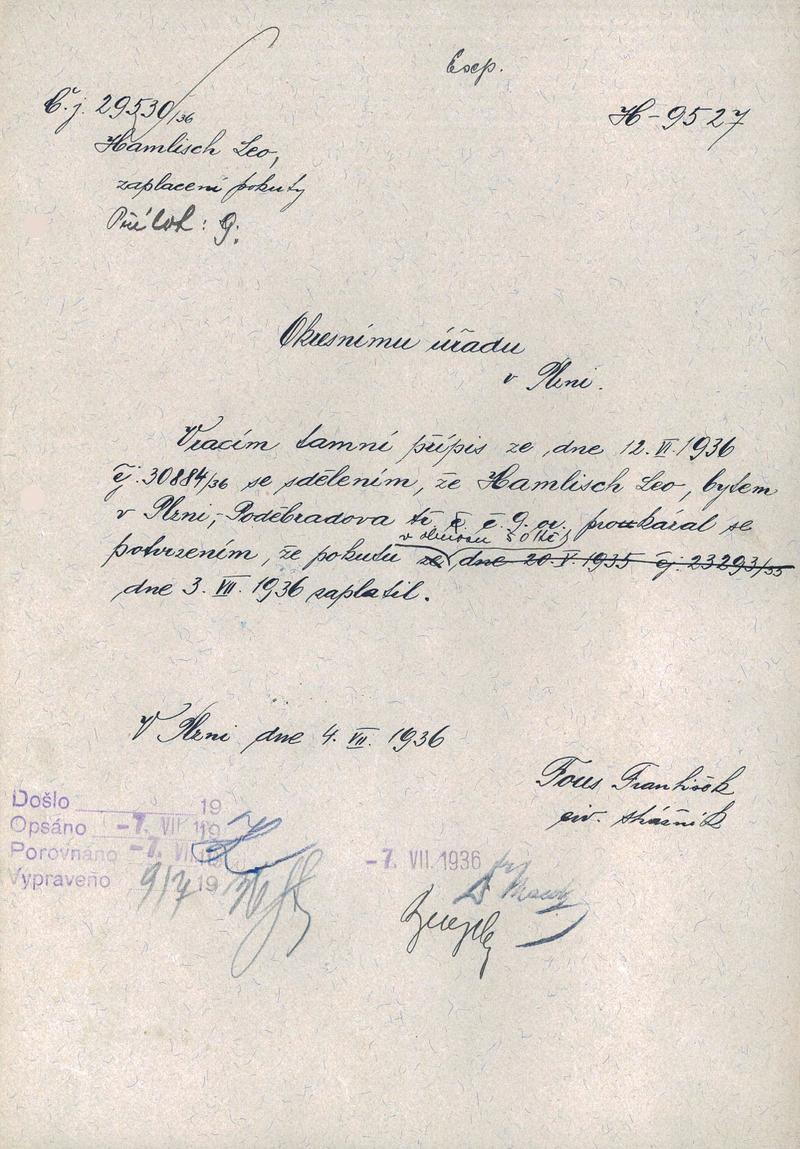 Exp.
Č.j. 29530/36
H-9527
Hamlisch Leo,
zaplacení pokuty
Příloh: 9.
Okresnímu úřadu
v Plzni.
Vracím tamní přípis ze dne 12. VI. 1936
čj. 30884/36 se sdělením, že Hamlisch Leo, bytem
v Plzni, Poděbradova tř. č. 9. or. prokázal se
v obnosu
potvrzením, že pokutu ze dne 20. V. 1935 čj. 23293/35
dne 3. VII. 1936 zaplatil.
V Plzni dne 4. VII. 1936
Fous František
civ. strážník
Došlo 19
Opsáno -7. VII 19
Porovnáno -7. VII. 19
Vypraveno 9/7 19
-7. VII. 1936